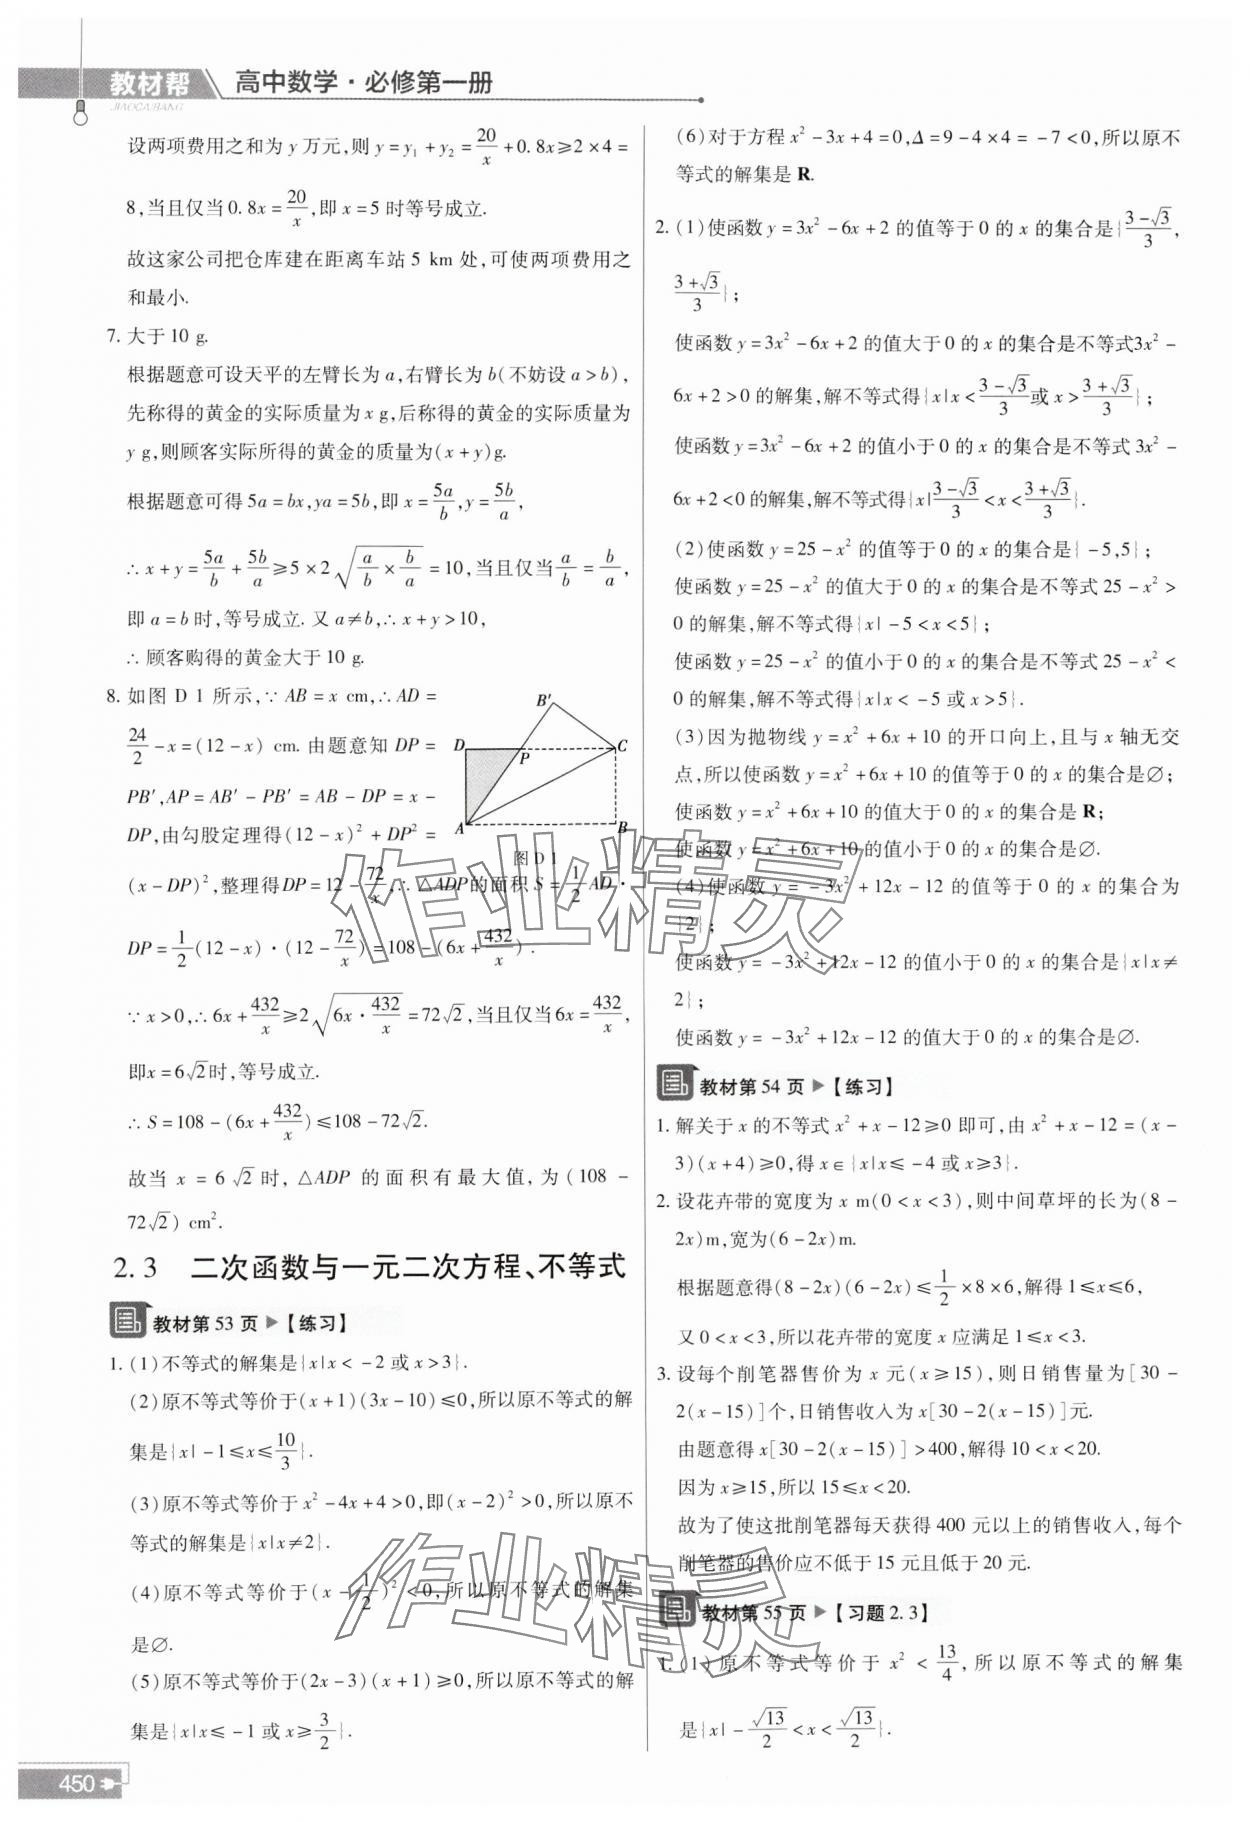 教材帮
JIAOCAIBANG
高中数学·必修第一册
设两项费用之和为 y 万元,则 y = y₁ + y₂ = 20/x + 0.8x ≥ 2×4 =
8,当且仅当 0.8x = 20/x,即 x = 5 时等号成立.
故这家公司把仓库建在距离车站 5 km 处,可使两项费用之
和最小.
7. 大于 10 g.
根据题意可设天平的左臂长为 a,右臂长为 b(不妨设 a > b),
先称得的黄金的实际质量为 x g,后称得的黄金的实际质量为
y g,则顾客实际所得的黄金的质量为(x + y)g.
根据题意可得 5a = bx,ya = 5b,即 x = 5a/b,y = 5b/a,
∴ x + y = 5a/b + 5b/a ≥ 5×2√(a/b × b/a) = 10,当且仅当 a/b = b/a,
即 a = b 时,等号成立. 又 a ≠ b,∴ x + y > 10,
∴ 顾客购得的黄金大于 10 g.
8. 如图 D 1 所示,∵ AB = x cm,∴ AD =
24/2 - x = (12 - x) cm. 由题意知 DP =
PB′,AP = AB′ - PB′ = AB - DP = x -
DP,由勾股定理得(12 - x)² + DP² =
B′
D
P
C
A
B
图 D 1
(x - DP)²,整理得 DP = 12 - 72/x,∴ △ADP 的面积 S = 1/2 AD·
DP = 1/2(12 - x)·(12 - 72/x) = 108 - (6x + 432/x).
∵ x > 0,∴ 6x + 432/x ≥ 2√(6x·432/x) = 72√2,当且仅当 6x = 432/x,
即 x = 6√2时,等号成立.
∴ S = 108 - (6x + 432/x) ≤ 108 - 72√2.
故当 x = 6√2 时,△ADP 的面积有最大值,为(108 -
72√2) cm².
2.3 二次函数与一元二次方程、不等式
教材第 53 页 ▶【练习】
1. (1)不等式的解集是{x|x < -2 或 x > 3}.
(2)原不等式等价于(x + 1)(3x - 10) ≤ 0,所以原不等式的解
集是{x| -1 ≤ x ≤ 10/3}.
(3)原不等式等价于 x² - 4x + 4 > 0,即(x - 2)² > 0,所以原不
等式的解集是{x|x ≠ 2}.
(4)原不等式等价于(x - 1/2)² < 0,所以原不等式的解集
是∅.
(5)原不等式等价于(2x - 3)(x + 1) ≥ 0,所以原不等式的解
集是{x|x ≤ -1 或 x ≥ 3/2}.
(6)对于方程 x² - 3x + 4 = 0,Δ = 9 - 4×4 = -7 < 0,所以原不
等式的解集是 R.
2. (1)使函数 y = 3x² - 6x + 2 的值等于 0 的 x 的集合是{(3 - √3)/3,
(3 + √3)/3};
使函数 y = 3x² - 6x + 2 的值大于 0 的 x 的集合是不等式3x² -
6x + 2 > 0 的解集,解不等式得{x|x < (3 - √3)/3 或 x > (3 + √3)/3};
使函数 y = 3x² - 6x + 2 的值小于 0 的 x 的集合是不等式 3x² -
6x + 2 < 0 的解集,解不等式得{x|(3 - √3)/3 < x < (3 + √3)/3}.
(2)使函数 y = 25 - x² 的值等于 0 的 x 的集合是{-5,5};
使函数 y = 25 - x² 的值大于 0 的 x 的集合是不等式 25 - x² >
0 的解集,解不等式得{x| -5 < x < 5};
使函数 y = 25 - x² 的值小于 0 的 x 的集合是不等式 25 - x² <
0 的解集,解不等式得{x|x < -5 或 x > 5}.
(3)因为抛物线 y = x² + 6x + 10 的开口向上,且与 x 轴无交
点,所以使函数 y = x² + 6x + 10 的值等于 0 的 x 的集合是∅;
使函数 y = x² + 6x + 10 的值大于 0 的 x 的集合是 R;
使函数 y = x² + 6x + 10 的值小于 0 的 x 的集合是∅.
(4)使函数 y = -3x² + 12x - 12 的值等于 0 的 x 的集合为
{2};
使函数 y = -3x² + 12x - 12 的值小于 0 的 x 的集合是{x|x ≠
2};
使函数 y = -3x² + 12x - 12 的值大于 0 的 x 的集合是∅.
教材第 54 页 ▶【练习】
1. 解关于 x 的不等式 x² + x - 12 ≥ 0 即可,由 x² + x - 12 = (x -
3)(x + 4) ≥ 0,得 x ∈ {x|x ≤ -4 或 x ≥ 3}.
2. 设花卉带的宽度为 x m(0 < x < 3),则中间草坪的长为(8 -
2x)m,宽为(6 - 2x)m.
根据题意得(8 - 2x)(6 - 2x) ≤ 1/2 × 8 × 6,解得 1 ≤ x ≤ 6,
又 0 < x < 3,所以花卉带的宽度 x 应满足 1 ≤ x < 3.
3. 设每个削笔器售价为 x 元(x ≥ 15),则日销售量为[30 -
2(x - 15)]个,日销售收入为 x[30 - 2(x - 15)]元.
由题意得 x[30 - 2(x - 15)] > 400,解得 10 < x < 20.
因为 x ≥ 15,所以 15 ≤ x < 20.
故为了使这批削笔器每天获得 400 元以上的销售收入,每个
削笔器的售价应不低于 15 元且低于 20 元.
教材第 55 页 ▶【习题 2.3】
1. (1)原不等式等价于 x² < 13/4,所以原不等式的解集
是{x| -√13/2 < x < √13/2}.
450
作业精灵
作业精灵